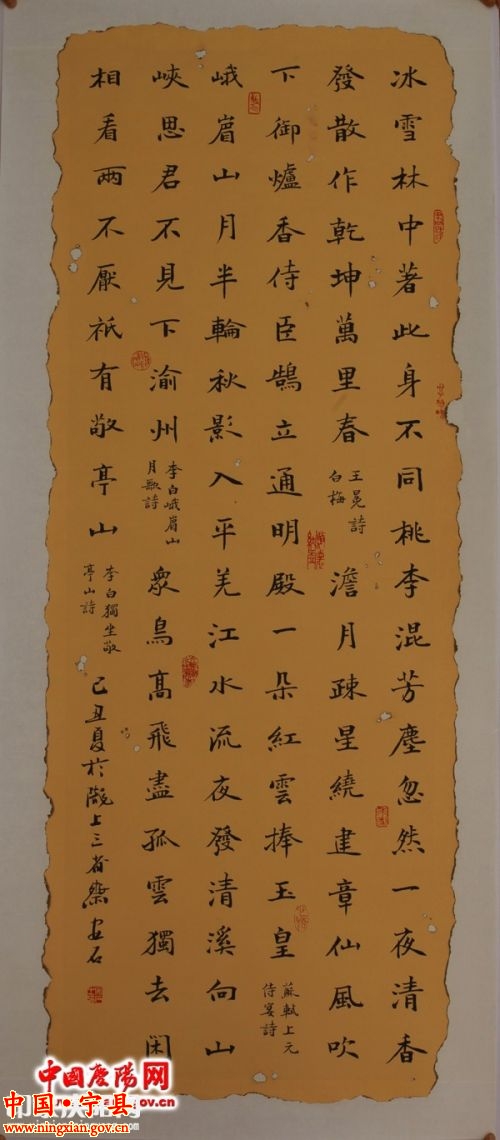 冰雪林中著此身不同桃李混芳塵忽然一夜清香
發散作乾坤萬里春
王冕詩
白梅
澹月疎星繞建章仙風吹
下御爐香侍臣鵠立通明殿一朵紅雲捧玉皇
蘇軾上元
侍宴詩
峨眉山月半輪秋影入平羌江水流夜發清溪向山
峽思君不見下渝州
李白峨眉山
月歌詩
眾鳥高飛盡孤雲獨去閑
相看兩不厭祇有敬亭山
李白獨坐敬
亭山詩
己丑夏於隴上三省齋安石
中國慶陽网
中国·宁县
www.ningxian.gov.cn